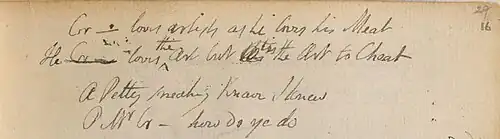 29
16
Cr — loves artists as he loves his Meat
He Cr — loves the Art but tis the Art to Cheat
A Petty sneaking Knave I knew
O Mr Cr — how do ye do